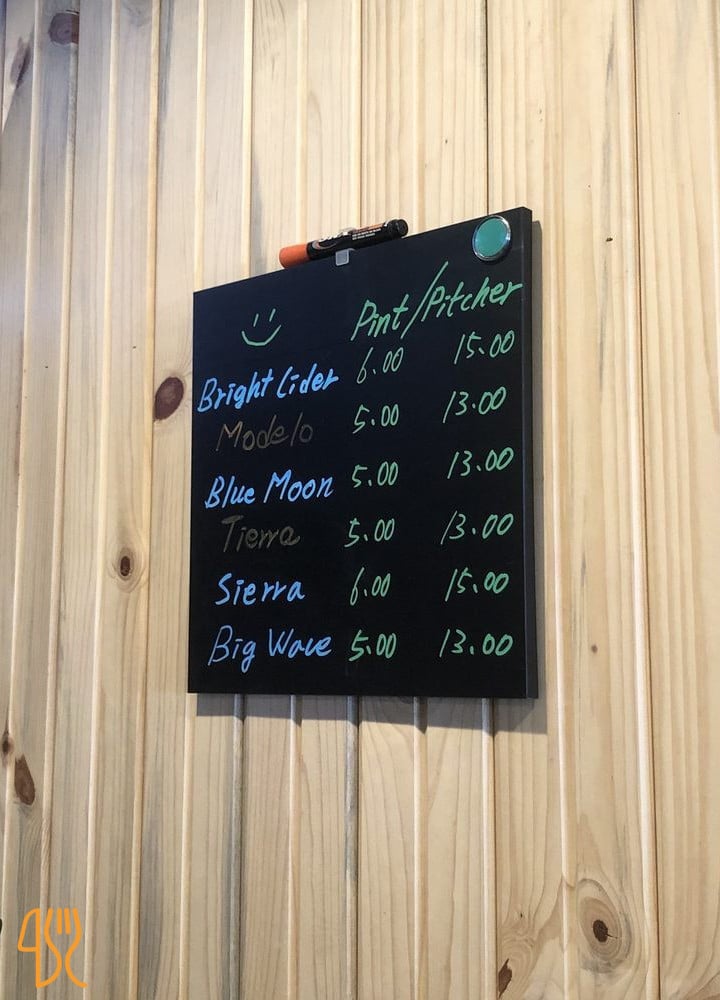 Pint/Pitcher
Bright Cider 6.00 15.00
Modelo 5.00 13.00
Blue Moon 5.00 13.00
Tierra 5.00 13.00
Sierra 6.00 15.00
Big Wave 5.00 13.00